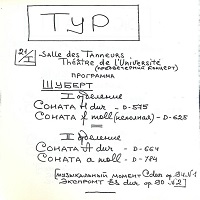 ТУР
21/I - Salle des Tanneurs
Théâtre de l'Université
(ПРОГРАММА
ШУБЕРТ
I отделение
СОНАТА H dur - D-575
СОНАТА f moll (неполная) - D-625
II отделение
СОНАТА A dur - D-664
СОНАТА a moll - D-784
[МУЗЫКАЛЬНЫЙ МОМЕНТ C dur op. 94 №1
ЭКСПРОМТ Es dur op 90 №2]